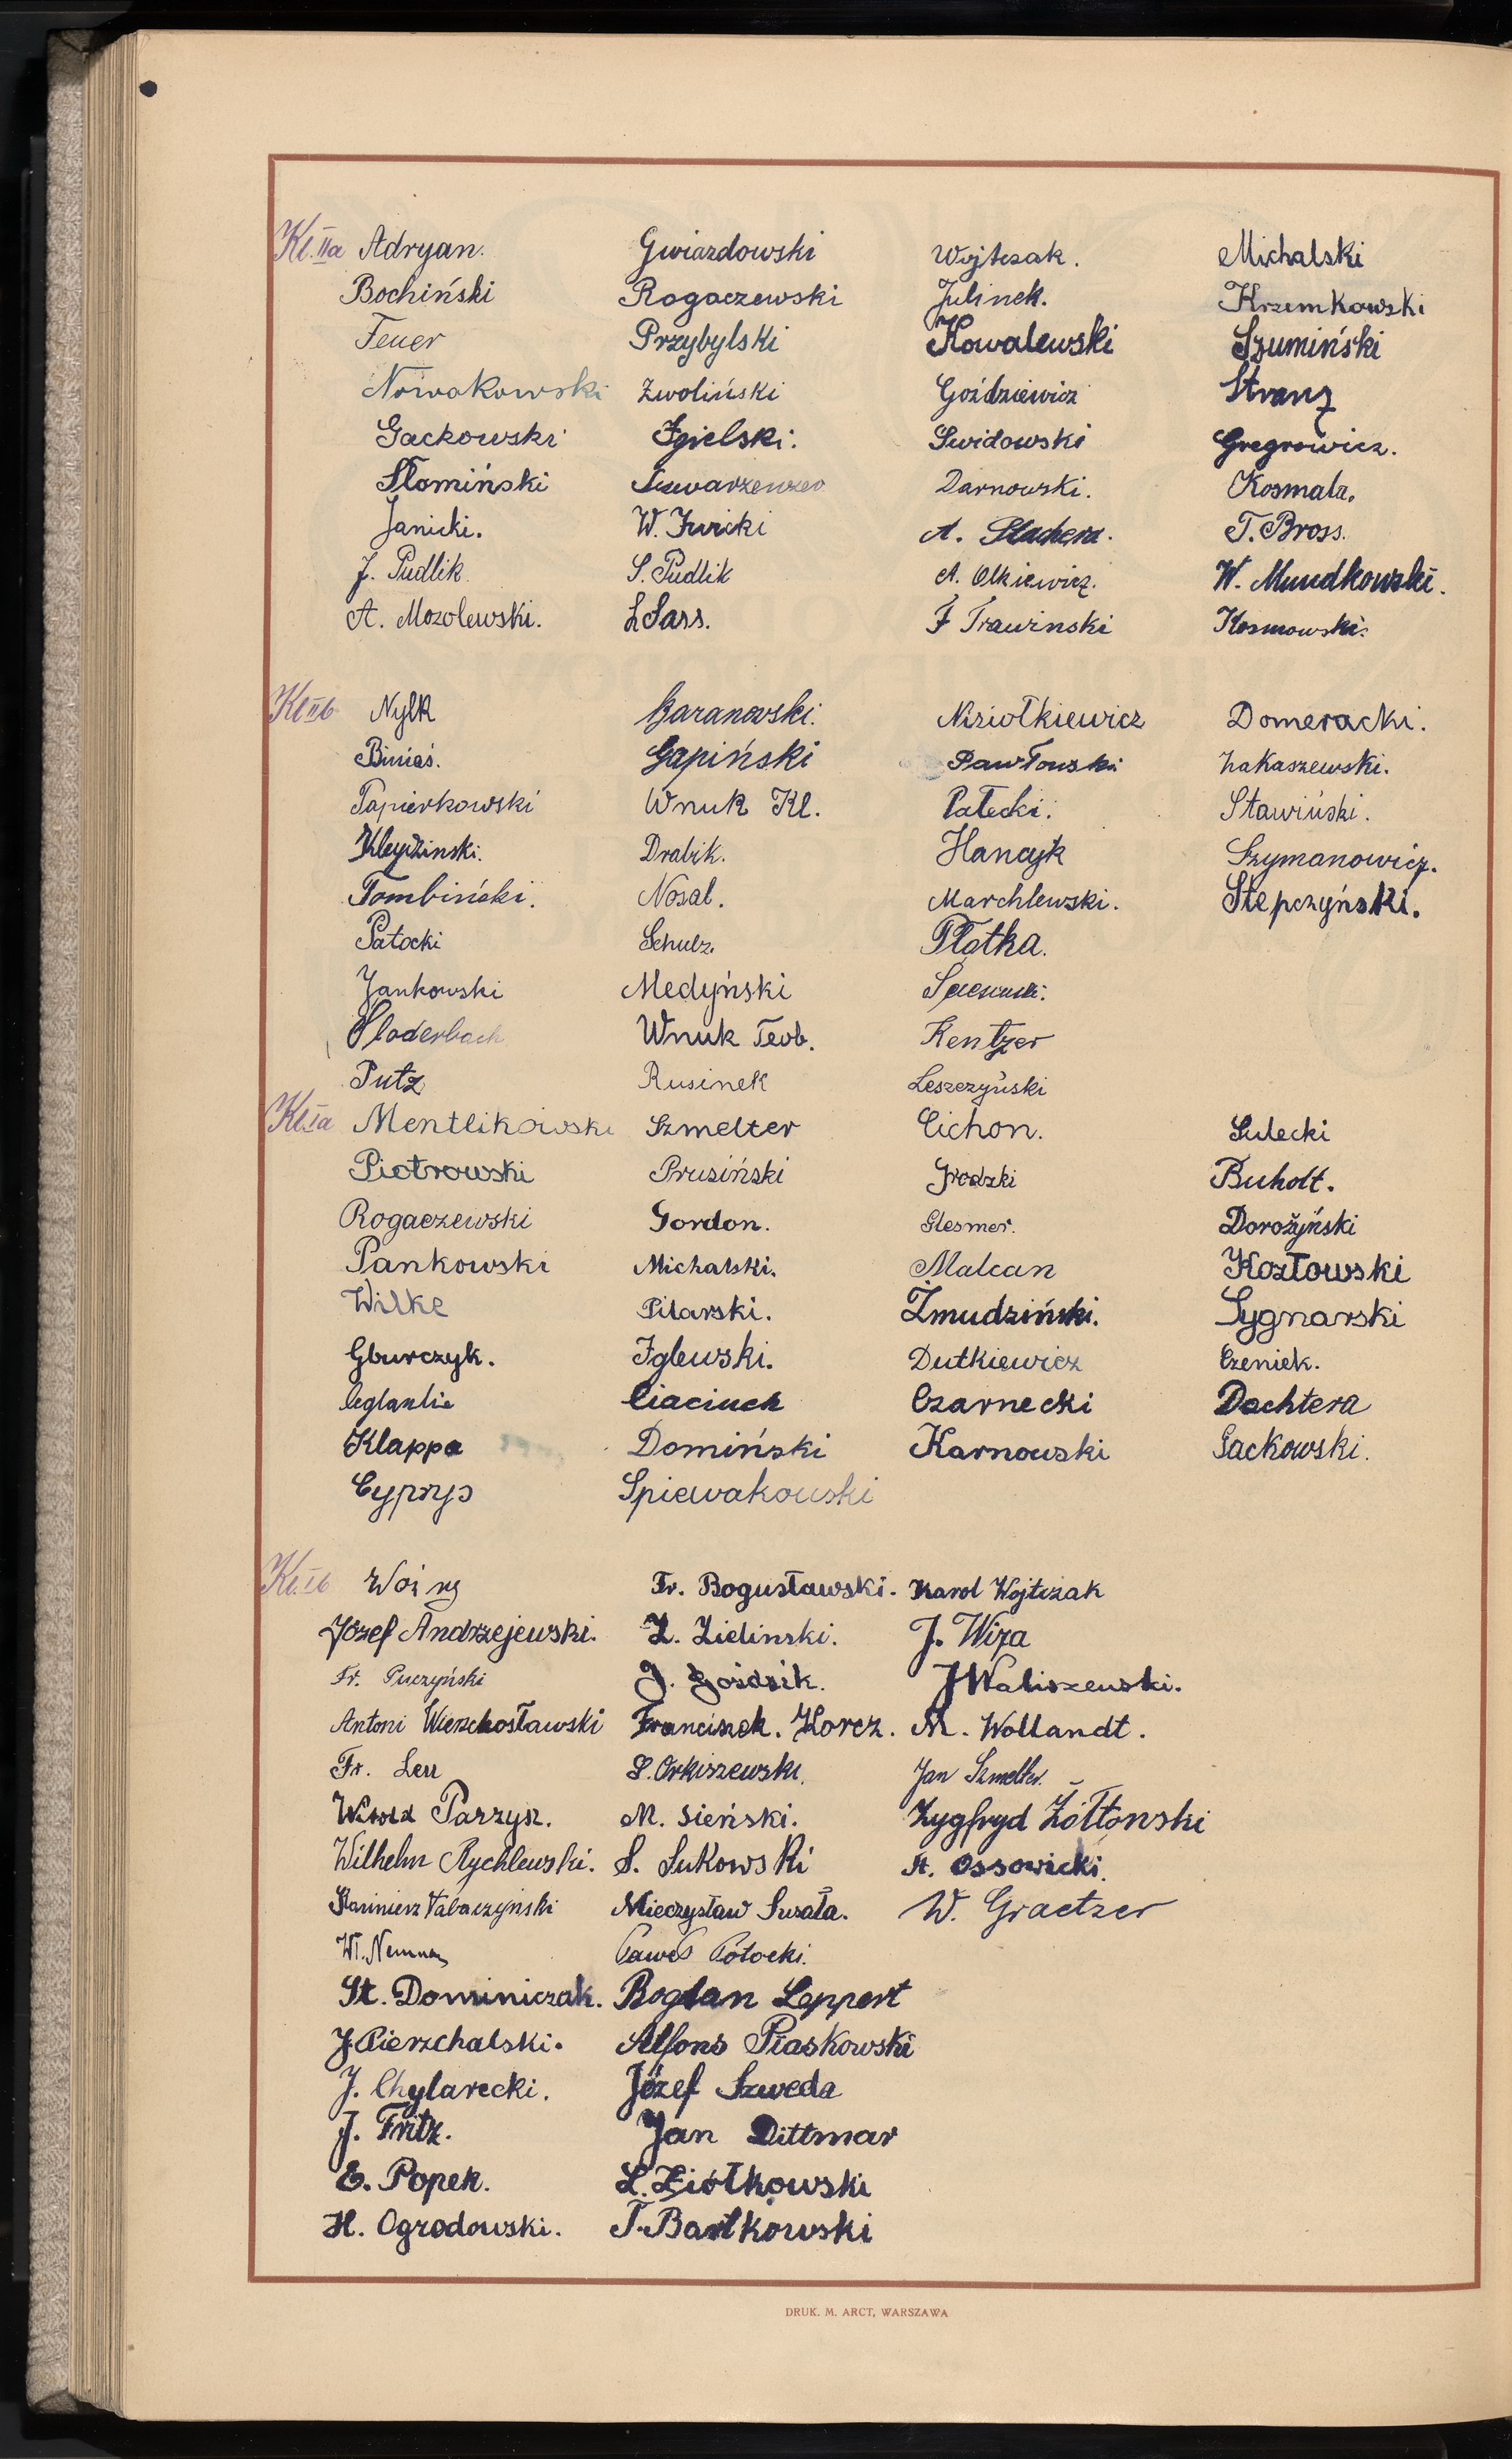 Kl. IIa Adryan. Gwiazdowski Wojtczak. Michalski
Bochiński Rogaczewski Julinek. Krzemkowski
Feuer Przybylski Kowalewski Szumiński
Nowakowski Zwoliński Goździewicz Stranz
Gackowski Igielski. Swidowski Gregrowicz.
Słomiński Darnowski. Kosmala.
Janicki. W. A. Stachera. T. Bross.
J. Pudlik S. Pudlik A. Olkiewicz. W. Mundkowski.
A. Mozolewski. L Sass. F Trawinski Kosmowski.
Kl IIb Nylk Baranowski. Niziołkiewicz Domeracki.
Binias. Gapiński Pawłowski Łakaszewski.
Papierkowski Wnuk Kl. Pałecki. Stawiński.
Drabik. Hancyk Szymanowicz.
Tombiński. Nosal. Marchlewski. Stępczyński.
Patocki Schulz. Płotka.
Jankowski Medyński
Sloderbach Wnuk Teob. Kentzer
Putz Rusinek Leszczyński
Kl. Ia Mentlikowski Szmelter Cichon. Sulecki
Piotrowski Prusiński Grodzki Buholt.
Rogaczewski Gordon. Glesmer. Dorożyński
Pankowski Michalski. Malcan Kozłowski
Wilke Pilarski. Żmudziński. Sygnarski
Gburczyk. Iglewski. Dutkiewicz Czeniek.
Ciaciuch Czarnecki Dachtera
Klappa Domiński Karnowski Gackowski.
Cyprys Spiewakowski
Kl. Ib Fr. Bogusławski. Karol Wojtczak
Józef Andrzejewski. Z. Zielinski. J. Wiza
Fr. Puczyński J. Goździk. J Waliszewski.
Antoni Wierzchosławski Franciszek. Korcz. M. Wollandt.
Fr. Leu S. Orkiszewski. Jan Szmelter.
Witold Parzysz. M. Sieński. Zygfryd Żółtonski
Wilhelm Rychlewski. S. Sukowski A. Ossowicki.
Kazimierz Tabaczyński Mieczysław Suzała. W. Graetzer
Wł. Paweł Potocki.
St. Dominiczak. Bogdan Leppert
J. Pierzchalski. Alfons Piaskowski
J. Chylarecki. Józef Szweda
J. Fritz. Jan Dittmar
E. Popek. L. Ziółkowski
H. Ogrodowski. T. Bartkowski
DRUK. M. ARCT, WARSZAWA